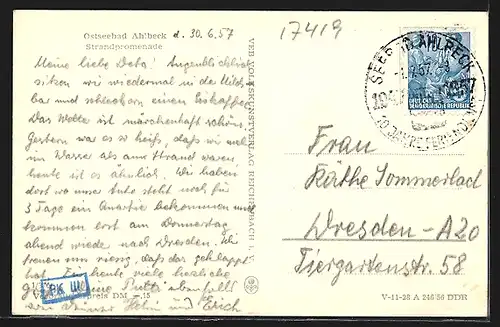 Ostseebad Ahlbeck d. 30.6.57
Strandpromenade
17419
Meine liebe Deta! Augenblicklich
sitzen wir wiedermal in der Milch-
bar und schleckern einen Eiskaffee.
Das Wetter ist märchenhaft schön.
Gestern war es so heiß, daß wir viel
im Wasser als am Strand waren,
heute ist es ähnlich. Wir haben
dort wo unser Auto steht noch für
3 Tage ein Quartier bekommen und
kommen erst am Donnerstag
abend wieder nach Dresden. Wir
freuen uns riesig, daß das geklappt
hat. Für heute viele herzliche
Grüße meine Putte ebenfalls
von Deiner und Erich
VEB VOLKSKUNSTVERLAG REICHENBACH I. V.
SEEBAD AHLBECK
10 JAHRE
DEUTSCHE
DEMOKRATISCHE REPUBLIK
Frau
Käthe Sommerlad
Dresden-A20
Tiergartenstr. 58
PK III
preis DM -,15
V-11-28 A 246/56 DDR